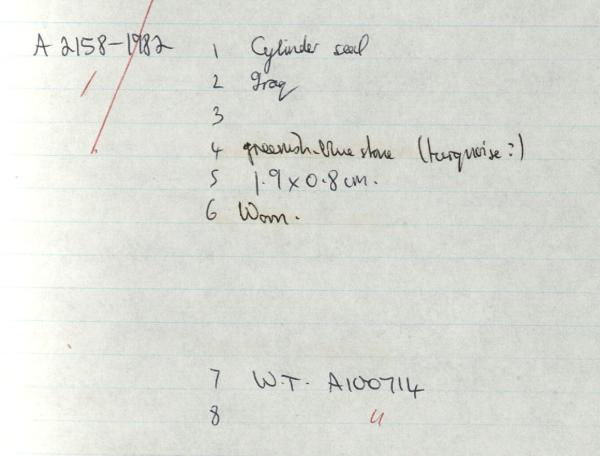 A 2158-1982 1 Cylinder seal
2 Iraq
3
4 greenish-blue stone (turquoise?)
5 1.9 x 0.8 cm.
6 Worn.
7 W.T. A100714
8